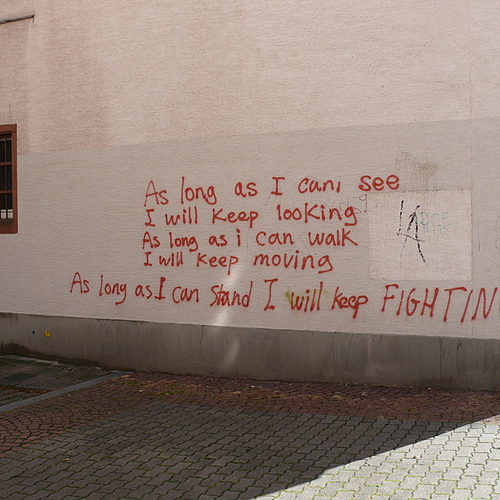 As long as I can see
I will keep looking
As long as i can walk
I will keep moving
As long as I can stand I will keep FIGHTIN